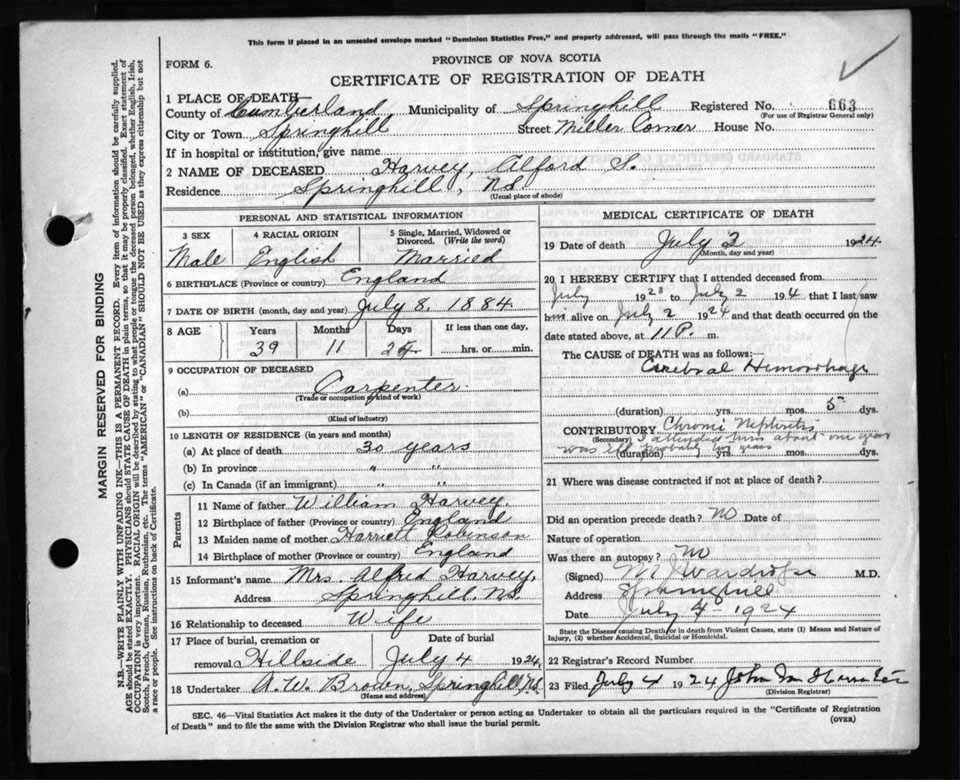 This form if placed in an unsealed envelope marked "Dominion Statistics Free," and properly addressed, will pass through the mails "FREE."
FORM 6.
PROVINCE OF NOVA SCOTIA
CERTIFICATE OF REGISTRATION OF DEATH
1 PLACE OF DEATH—
County of Cumberland Municipality of Springhill Registered No. 663
(For use of Registrar General only)
City or Town Springhill Street Miller Corner House No.
If in hospital or institution, give name
2 NAME OF DECEASED Harvey, Alford S.
Residence Springhill, N.S.
(Usual place of abode)
PERSONAL AND STATISTICAL INFORMATION
3 SEX 4 RACIAL ORIGIN 5 Single, Married, Widowed or Divorced. (Write the word)
Male English Married
6 BIRTHPLACE (Province or country) England
7 DATE OF BIRTH (month, day and year) July 8, 1884
8 AGE Years Months Days If less than one day,
39 11 24 hrs. or min.
9 OCCUPATION OF DECEASED
(a) Carpenter
(Trade or occupation or kind of work)
(b)
(Kind of industry)
10 LENGTH OF RESIDENCE (in years and months)
(a) At place of death 30 years
(b) In province " "
(c) In Canada (if an immigrant) " "
Parents
11 Name of father William Harvey
12 Birthplace of father (Province or country) England
13 Maiden name of mother Harriett Robinson
14 Birthplace of mother (Province or country) England
15 Informant's name Mrs. Alfred Harvey,
Address Springhill, N.S.
16 Relationship to deceased Wife
17 Place of burial, cremation or Date of burial
removal Hillside July 4 1924
18 Undertaker A.W. Brown, Springhill, N.S.
(Name and address)
MEDICAL CERTIFICATE OF DEATH
19 Date of death July 2 1924
(Month, day and year)
20 I HEREBY CERTIFY that I attended deceased from
July 1923 to July 2 1924 that I last saw
him alive on July 2 1924 and that death occurred on the
date stated above, at 11 P. m.
The CAUSE OF DEATH was as follows:
Cerebral Hemorrhage
(duration) yrs. mos. 5 dys.
CONTRIBUTORY Chronic Nephritis
(Secondary) I attended him about one year
was ill probably two years
(duration) yrs. mos. dys.
21 Where was disease contracted if not at place of death?
Did an operation precede death? No Date of
Nature of operation
Was there an autopsy? No
(Signed) M.D.
Address Springhill
Date July 4 - 1924
State the Disease causing Death, or in death from Violent Causes, state (1) Means and Nature of
Injury, (2) whether Accidental, Suicidal or Homicidal.
22 Registrar's Record Number
23 Filed July 4 1924 John
(Division Registrar)
SEC. 46—Vital Statistics Act makes it the duty of the Undertaker or person acting as Undertaker to obtain all the particulars required in the "Certificate of Registration
of Death" and to file the same with the Division Registrar who shall issue the burial permit.
(OVER)
MARGIN RESERVED FOR BINDING
N.B.—WRITE PLAINLY WITH UNFADING INK—THIS IS A PERMANENT RECORD. Every item of information should be carefully supplied.
AGE should be stated EXACTLY. PHYSICIANS should STATE CAUSE OF DEATH in plain terms, so that it may be properly classified. Exact statement of
OCCUPATION is very important. RACIAL ORIGIN will be described by stating to what people or tongue the deceased person belonged, whether English, Irish,
Scotch, French, German, Russian, Ruthenian, etc. The terms "AMERICAN" or "CANADIAN" SHOULD NOT BE USED as they express citizenship but not
a race or people. See instructions on back of Certificate.